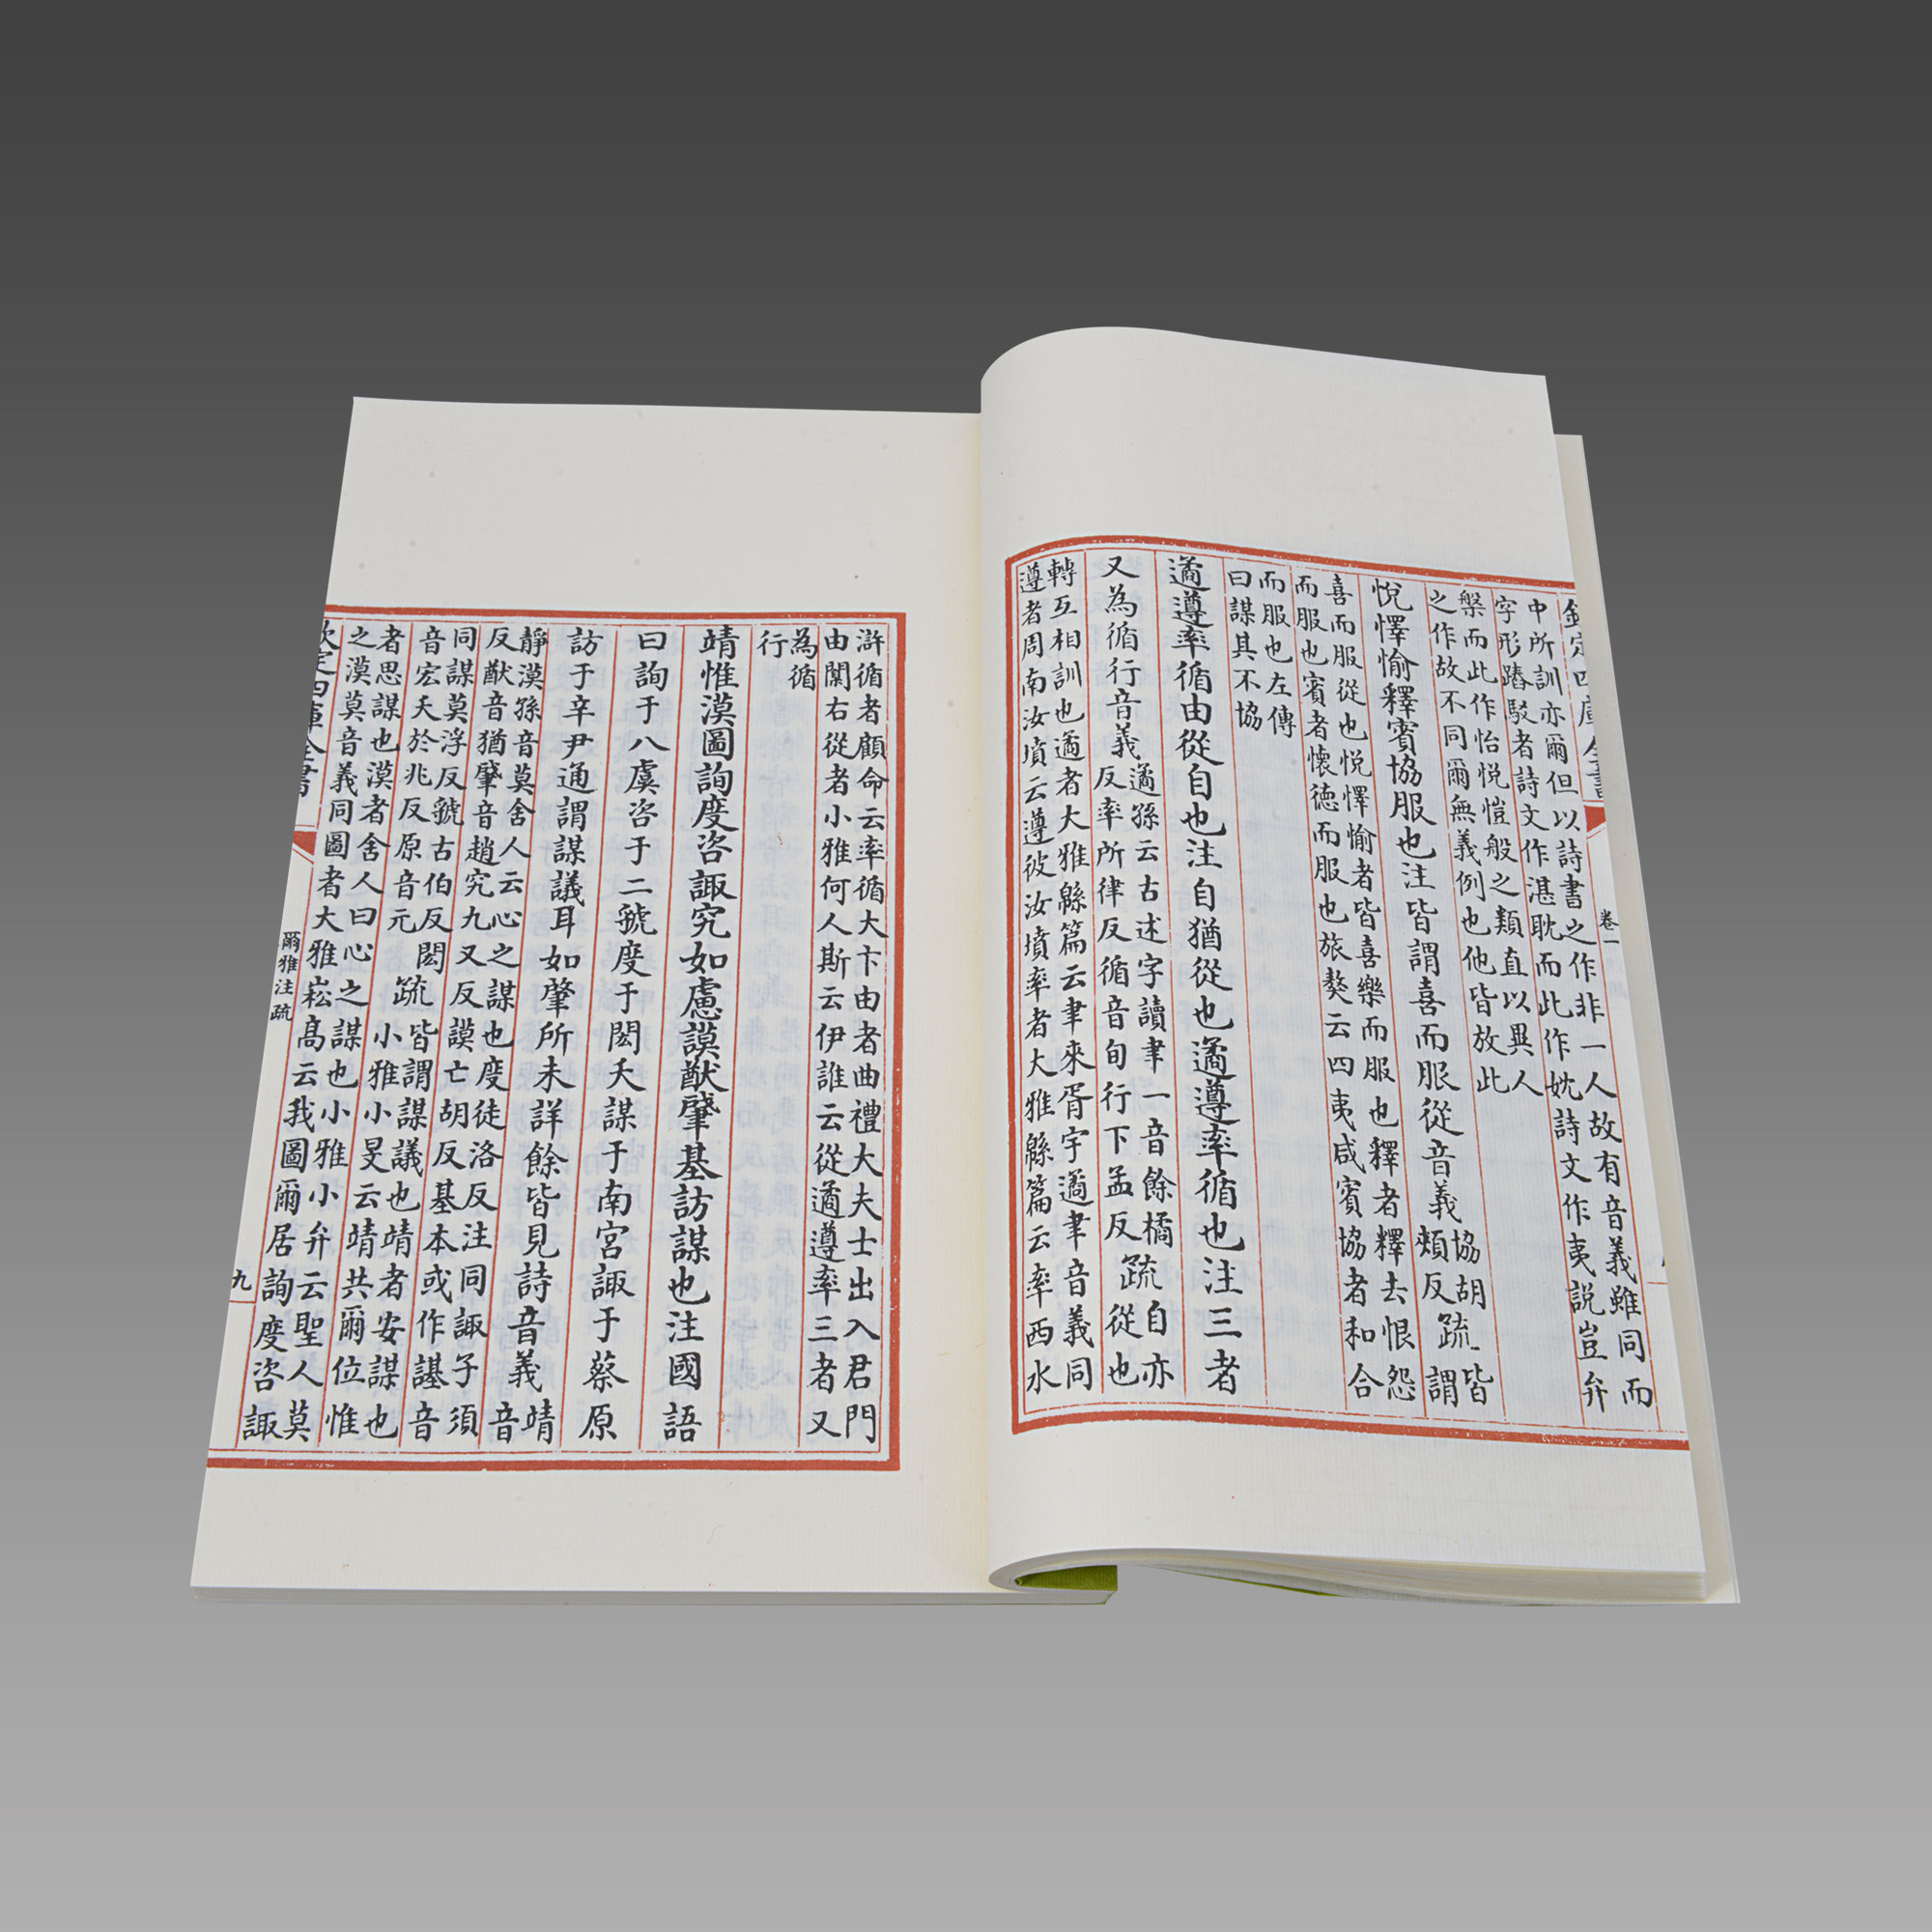 欽定四庫全書
卷一
中所訓亦爾但以詩書之作非一人故有音義雖同而
字形踳駁者詩文作湛耽而此作妉詩文作夷說豈弁
槃而此作怡悅愷般之類直以異人
之作故不同爾無義例也他皆放此
悅懌愉釋賓協服也注皆謂喜而服從音義協胡
頰反疏皆
謂
喜而服從也悅懌愉者皆喜樂而服也釋者釋去恨怨
而服也賓者懷德而服也旅獒云四夷咸賓協者和合
而服也左傳
曰謀其不協
遹遵率循由從自也注自猶從也遹遵率循也注三者
又為循行音義遹孫云古述字讀聿一音餘橘
反率所律反循音旬行下孟反疏自亦
從也
轉互相訓也遹者大雅緜篇云聿來胥宇遹聿音義同
遵者周南汝墳云遵彼汝墳率者大雅緜篇云率西水
滸循者顧命云率循大卞由者曲禮大夫士出入君門
由闑右從者小雅何人斯云伊誰云從遹遵率三者又
為循
行
靖惟漠圖詢度咨諏究如慮謨猷肇基訪謀也注國語
曰詢于八虞咨于二虢度于閎夭謀于南宮諏于蔡原
訪于辛尹通謂謀議耳如肇所未詳餘皆見詩音義靖
音
靜漠孫音莫舍人云心之謀也度徒洛反注同諏子須
反猷音猶肇音趙究九又反謨亡胡反基本或作諅音
同謀莫浮反虢古伯反閎
音宏夭於兆反原音元疏皆謂謀議也靖者安謀也
小雅小旻云靖共爾位惟
者思謀也漠者舍人曰心之謀也小雅小弁云聖人莫
之漠莫音義同圖者大雅崧高云我圖爾居詢度咨諏
欽定四庫全書
爾雅注疏
九